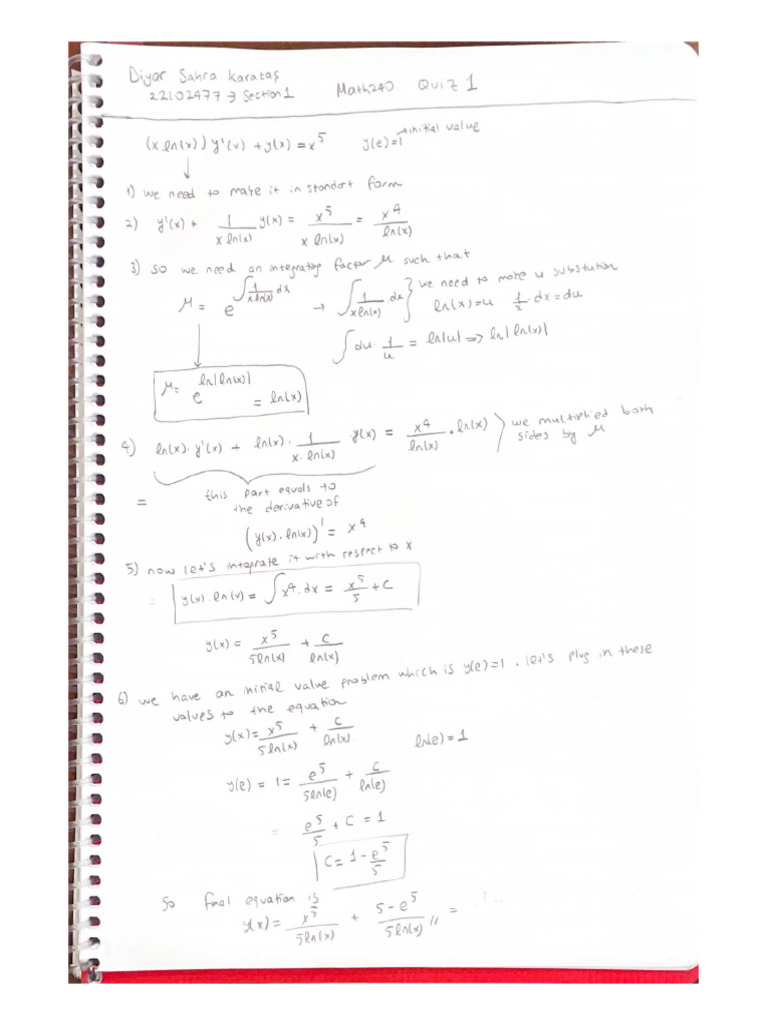 Diyar Sahra Karataş
22102477 → Section 1 Math240 Quiz 1
(x ln(x)) y'(x) + y(x) = x^5 y(e)=1 → initial value
1) we need to make it in standart form
2) y'(x) + 1/(x ln(x)) y(x) = x^5/(x ln(x)) = x^4/ln(x)
3) so we need an integrating factor μ such that
μ = e^(∫ 1/(x ln(x)) dx) → ∫ 1/(x ln(x)) · dx } we need to make u substution
ln(x) = u 1/x · dx = du
∫ du · 1/u = ln|u| => ln|ln(x)|
μ = e^(ln|ln(x)|) = ln(x)
4) ln(x) · y'(x) + ln(x) · 1/(x · ln(x)) · y(x) = x^4/ln(x) · ln(x) } we multiplied both
sides by μ
= this part equals to
the derivative of
(y(x) · ln(x))' = x^4
5) now let's integrate it with respect to x
= y(x) · ln(x) = ∫ x^4 · dx = x^5/5 + C
y(x) = x^5/(5ln(x)) + C/ln(x)
6) we have an initial value problem which is y(e)=1 . let's plug in these
values to the equation
y(x) = x^5/(5ln(x)) + C/ln(x) ln(e) = 1
y(e) = 1 = e^5/(5ln(e)) + C/ln(e)
= e^5/5 + C = 1
C = 1 - e^5/5
So final equation is
y(x) = x^5/(5ln(x)) + (5 - e^5)/(5ln(x)) // =